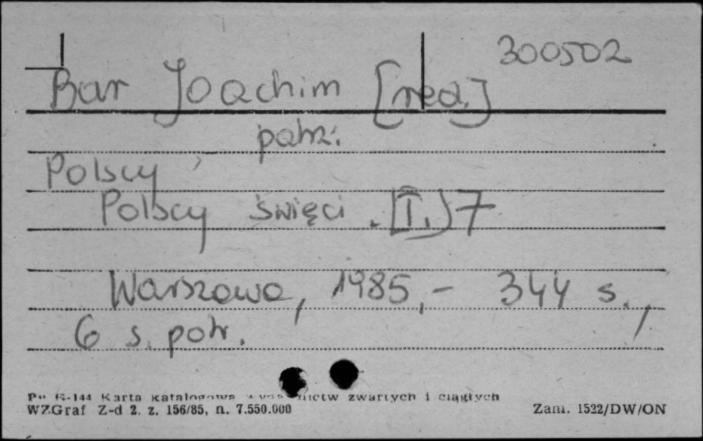 300502
Bar Joachim [red.]
patrz:
Polscy
Polscy święci . [T.] 7
Warszawa, 1985,- 344 s.,
6 s. portr.
Pu G-144 Karta katalogowa wydawnictw zwartych i ciągłych
WZGraf Z-d 2, z. 156/85, n. 7.550.000 Zam. 1522/DW/ON